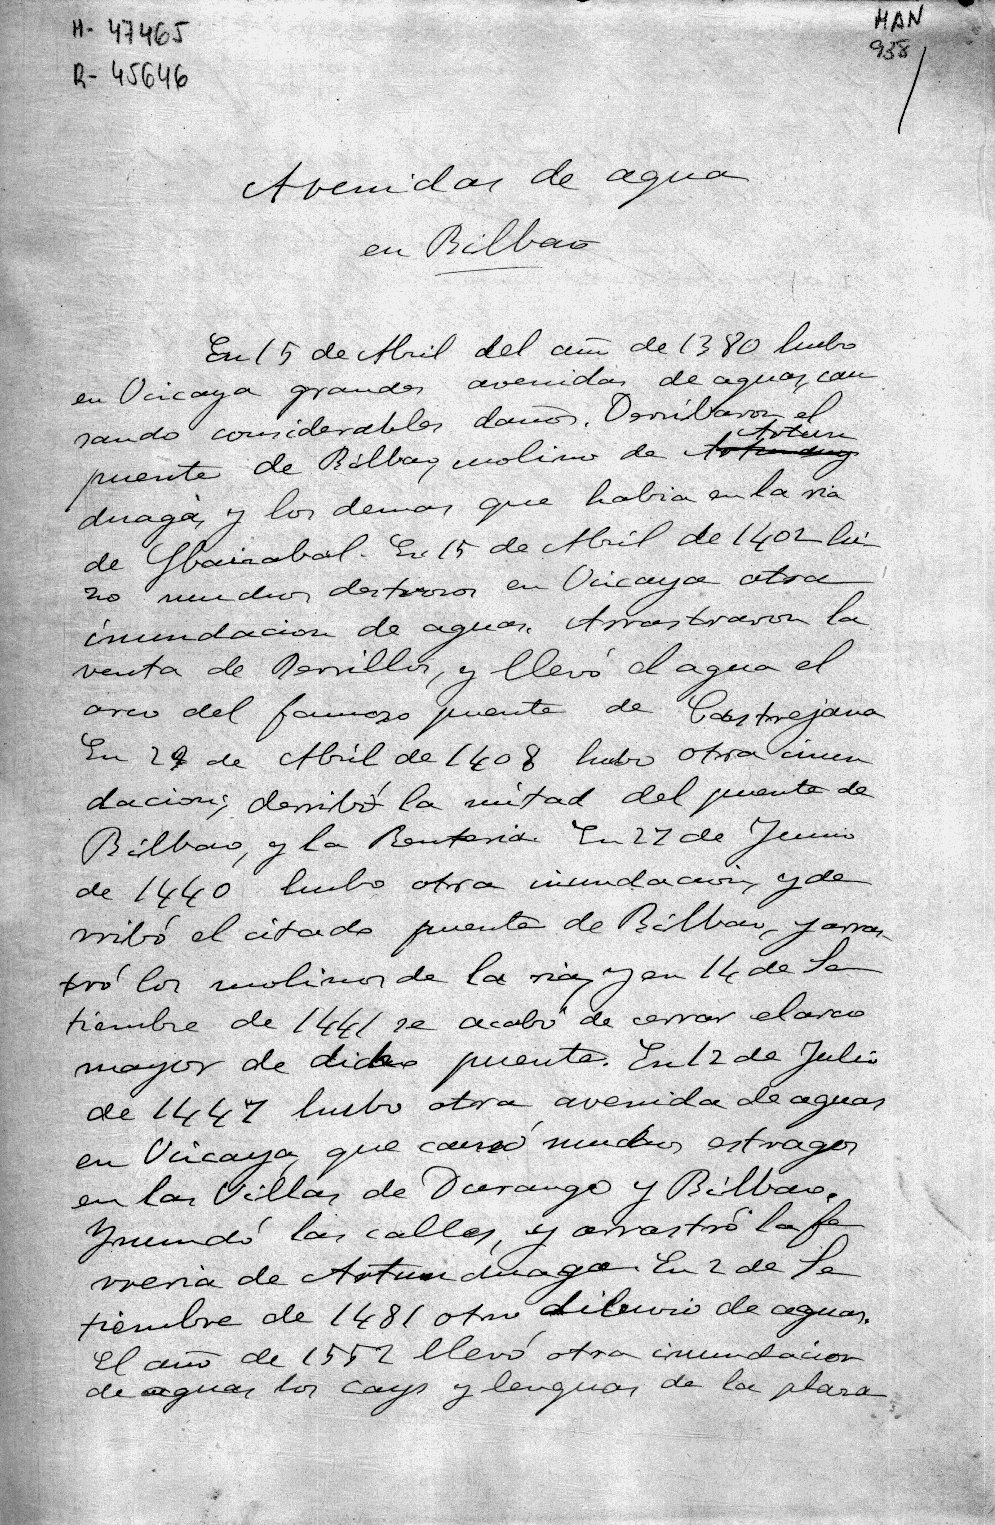 H- 47465
R- 45646
MAN
938
Avenidas de agua
en Bilbao
En 15 de Abril del año de 1380 hubo
en Vizcaya grandes avenidas de aguas, cau
sando considerables daños. Derribaron el
puente de Bilbao, molino de Artun
duaga, y los demas que habia en la ria
de Ybaizabal. En 15 de Abril de 1402 hi
zo muchos destrozos en Vizcaya otra
inundacion de aguas. Arrastraron la
venta de Perrillos, y llevó el agua el
arco del famoso puente de Castrejana
En 29 de Abril de 1408 hubo otra inun
dacion; derribó la mitad del puente de
Bilbao, y la Renteria. En 27 de Junio
de 1440 hubo otra inundacion, y de
rribó el citado puente de Bilbao, y arras
tró los molinos de la ria, y en 14 de Se
tiembre de 1441 se acabó de cerrar el arco
mayor de dicho puente. En 12 de Julio
de 1447 hubo otra avenida de aguas
en Vizcaya, que causó muchos estragos
en las Villas de Durango y Bilbao.
Ynundó las calles, y arrastró la fe
rreria de Artunduaga. En 2 de Se
tiembre de 1481 otro diluvio de aguas.
El año de 1552 llevó otra inundacion
de aguas los cays y lenguas de la plaza